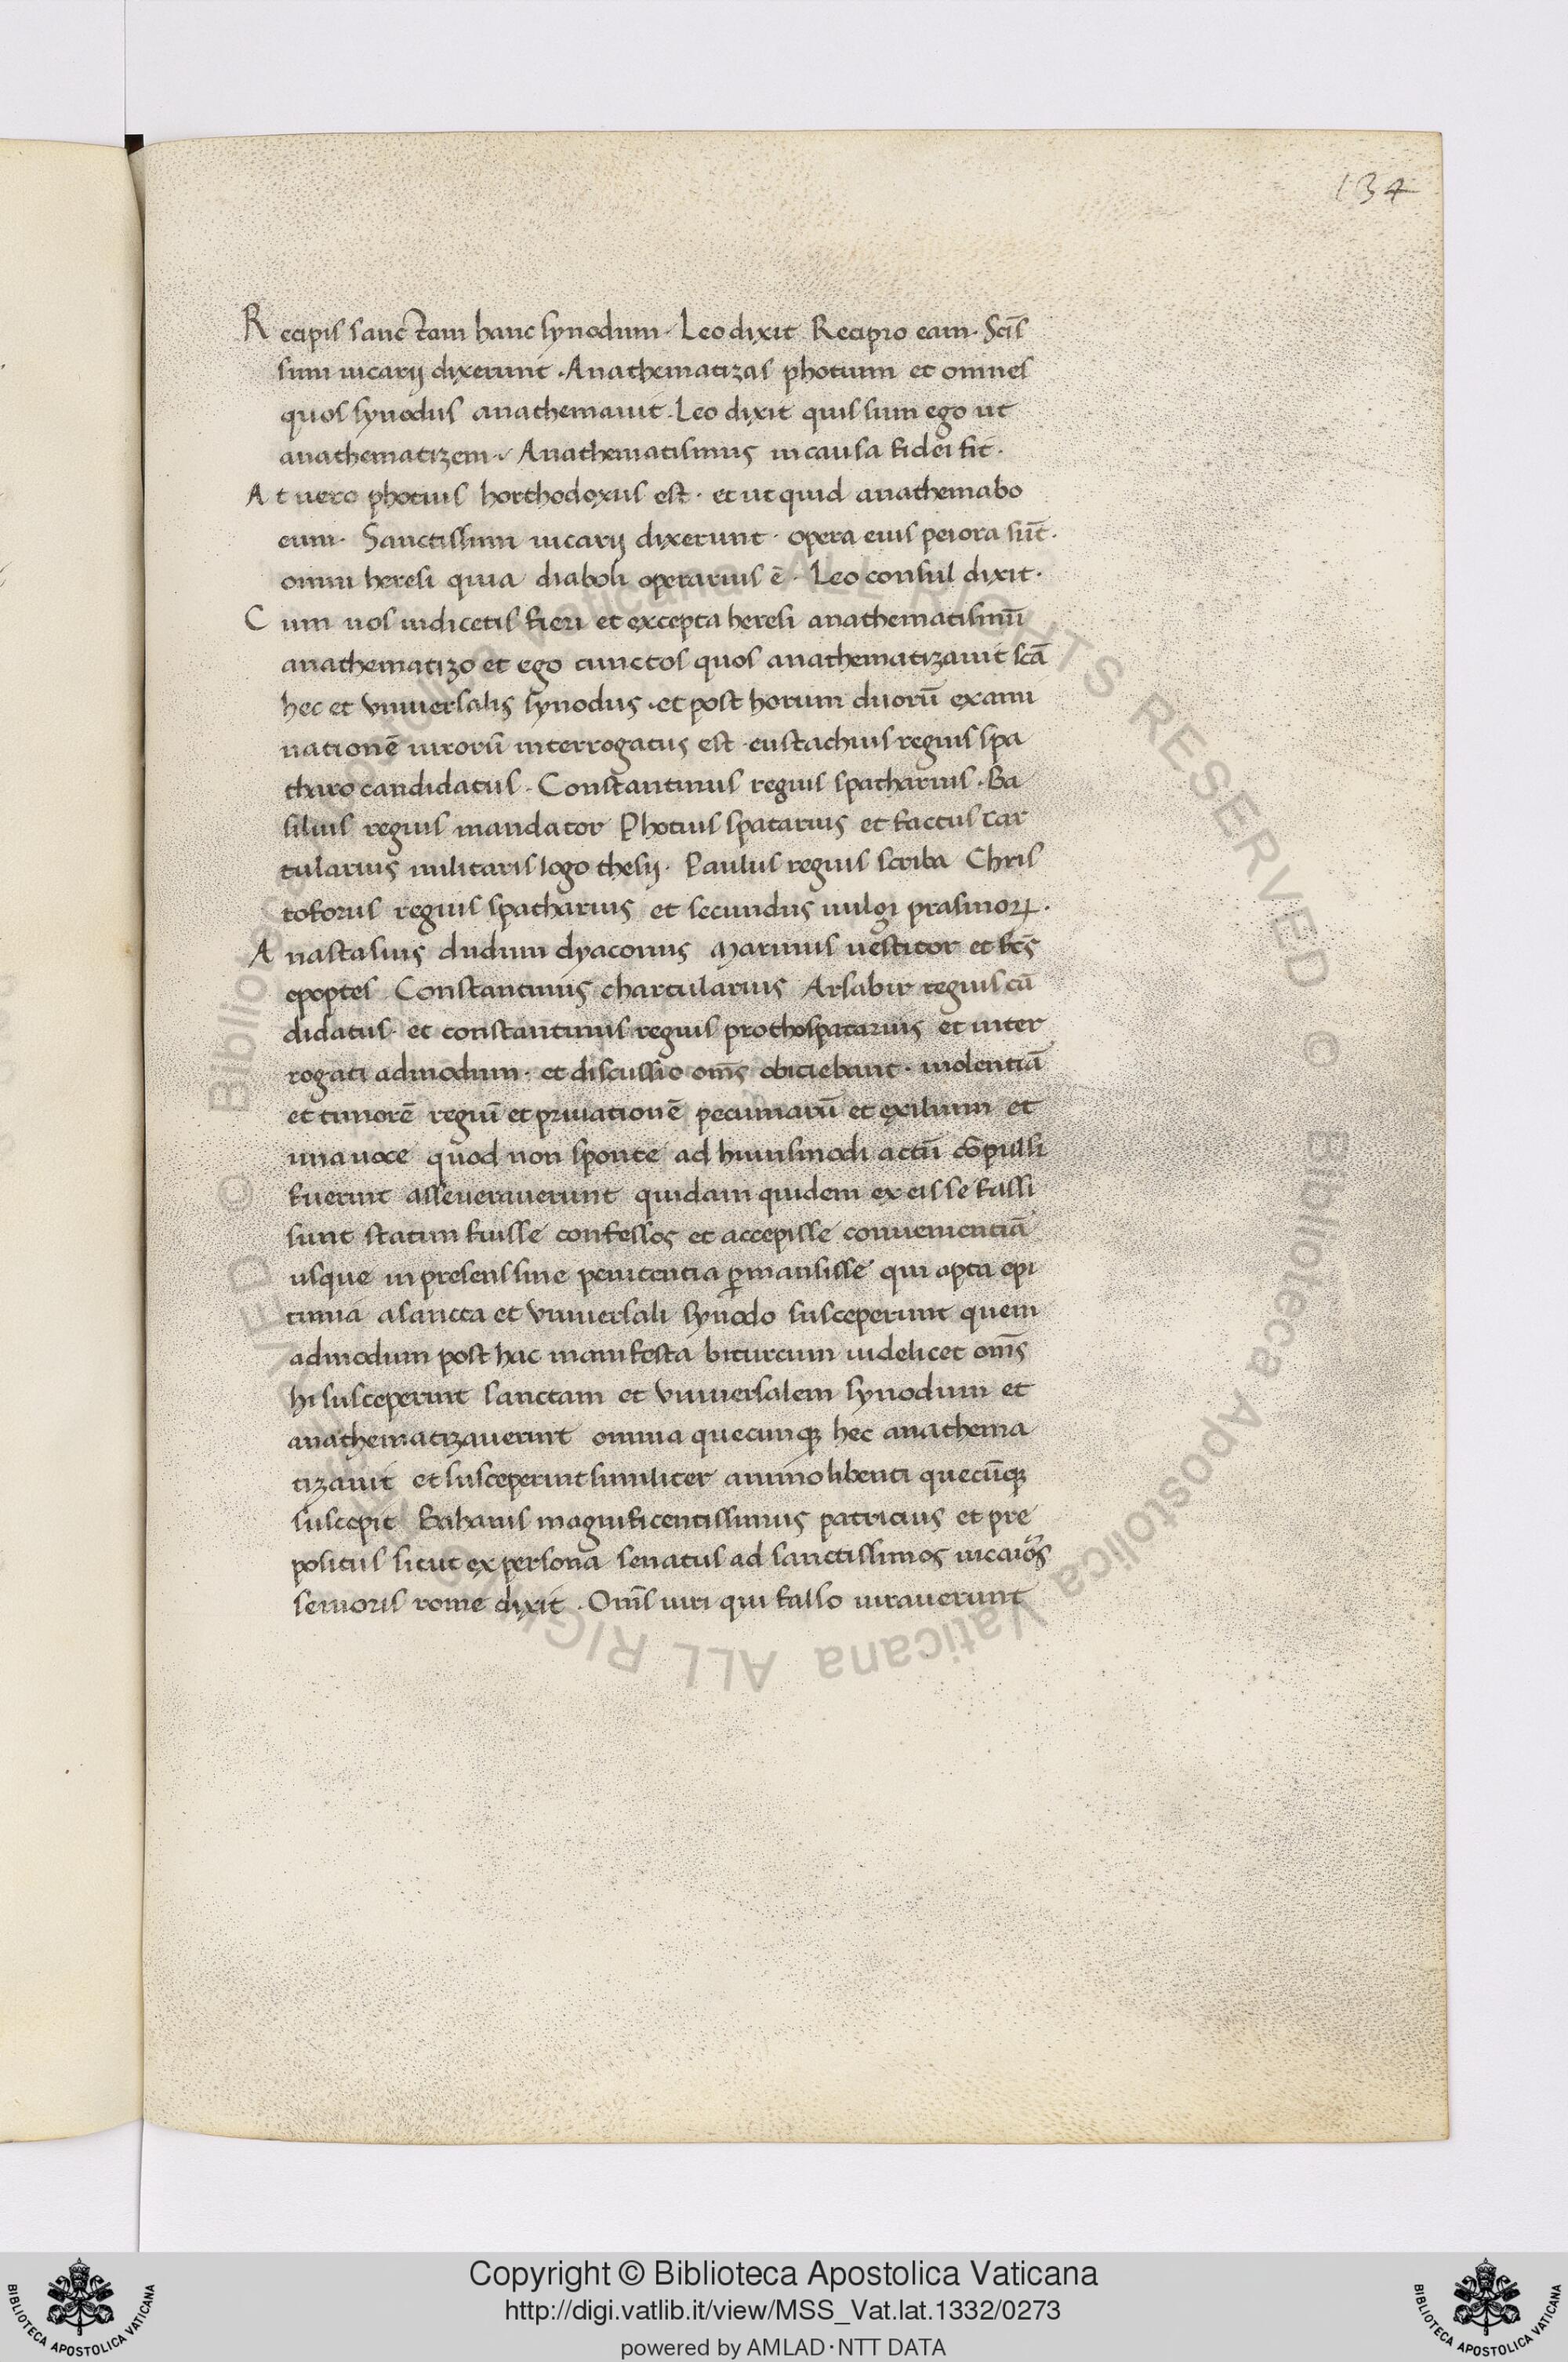 134
Recipis sanctam hanc synodum · Leo dixit Recipio eam · Scīs
simi uicarij dixerunt · Anathematizas photium et omnes
quos synodus anathemauit · Leo dixit quis sum ego ut
anathematizem · Anathematismus in causa fidei fit ·
At uero photius horthodoxus est · et ut quid anathemabo
eum · Sanctissimi uicarij dixerunt · opera eius peiora sūt ·
omni heresi quia diaboli operarius ē · Leo consul dixit ·
Cum uos iudicetis fieri et excepta heresi anathematismū
anathematizo et ego cunctos quos anathematizauit scā
hec et vniuersalis synodus · et post horum duorū exami
nationē uirorū interrogatus est · eustachius regius spa
tharo candidatus · Constantinus regius spatharius · Ba
silius regius mandator Photius spatarius et factus car
tularius militaris logo thesij · Paulus regius scriba Chris
toforus regius spatharius et secundus uulgi prasinoꝝ ·
Anastasius dudum dyaconus Marinus uestitor et fcs̄
epoptes Constantinus chartularius Arsabir regius cā
didatus · et constantinus regius prothospatarius et inter
rogati admodum · et discussio oms̄ obiciebant · uiolentiā
et timorē regiū et priuationē pecuniarū et exilium et
una uoce quod non sponte ad huiusmodi actū cōpulsi
fuerint asseuerauerunt quidam quidem ex eis se fassi
sunt statim fuisse confessos et accepisse conuenientiā
usque in presens sine penitentia ꝑmansisse qui apta epi
timia a sancta et vniuersali synodo susceperunt quem
admodum post hac manifesta biturcum uidelicet oms̄
hi susceperunt sanctam et vniuersalem synodum et
anathematizauerunt omnia quecunqꝫ hec anathema
tizauit et susceperunt similiter animo libenti quecūqꝫ
suscepit Bahanis magnificentissimus patricius et pre
positus sicut ex persona senatus ad sanctissimos uicarios
senioris rome dixit · Oms̄ uiri qui falso iurauerunt
Copyright © Biblioteca Apostolica Vaticana
http://digi.vatlib.it/view/MSS_Vat.lat.1332/0273
powered by AMLAD·NTT DATA
BIBLIOTECA APOSTOLICA VATICANA
BIBLIOTECA APOSTOLICA VATICANA
© Biblioteca Apostolica Vaticana ALL RIGHTS RESERVED © Biblioteca Apostolica Vaticana ALL RIGHTS RESERVED